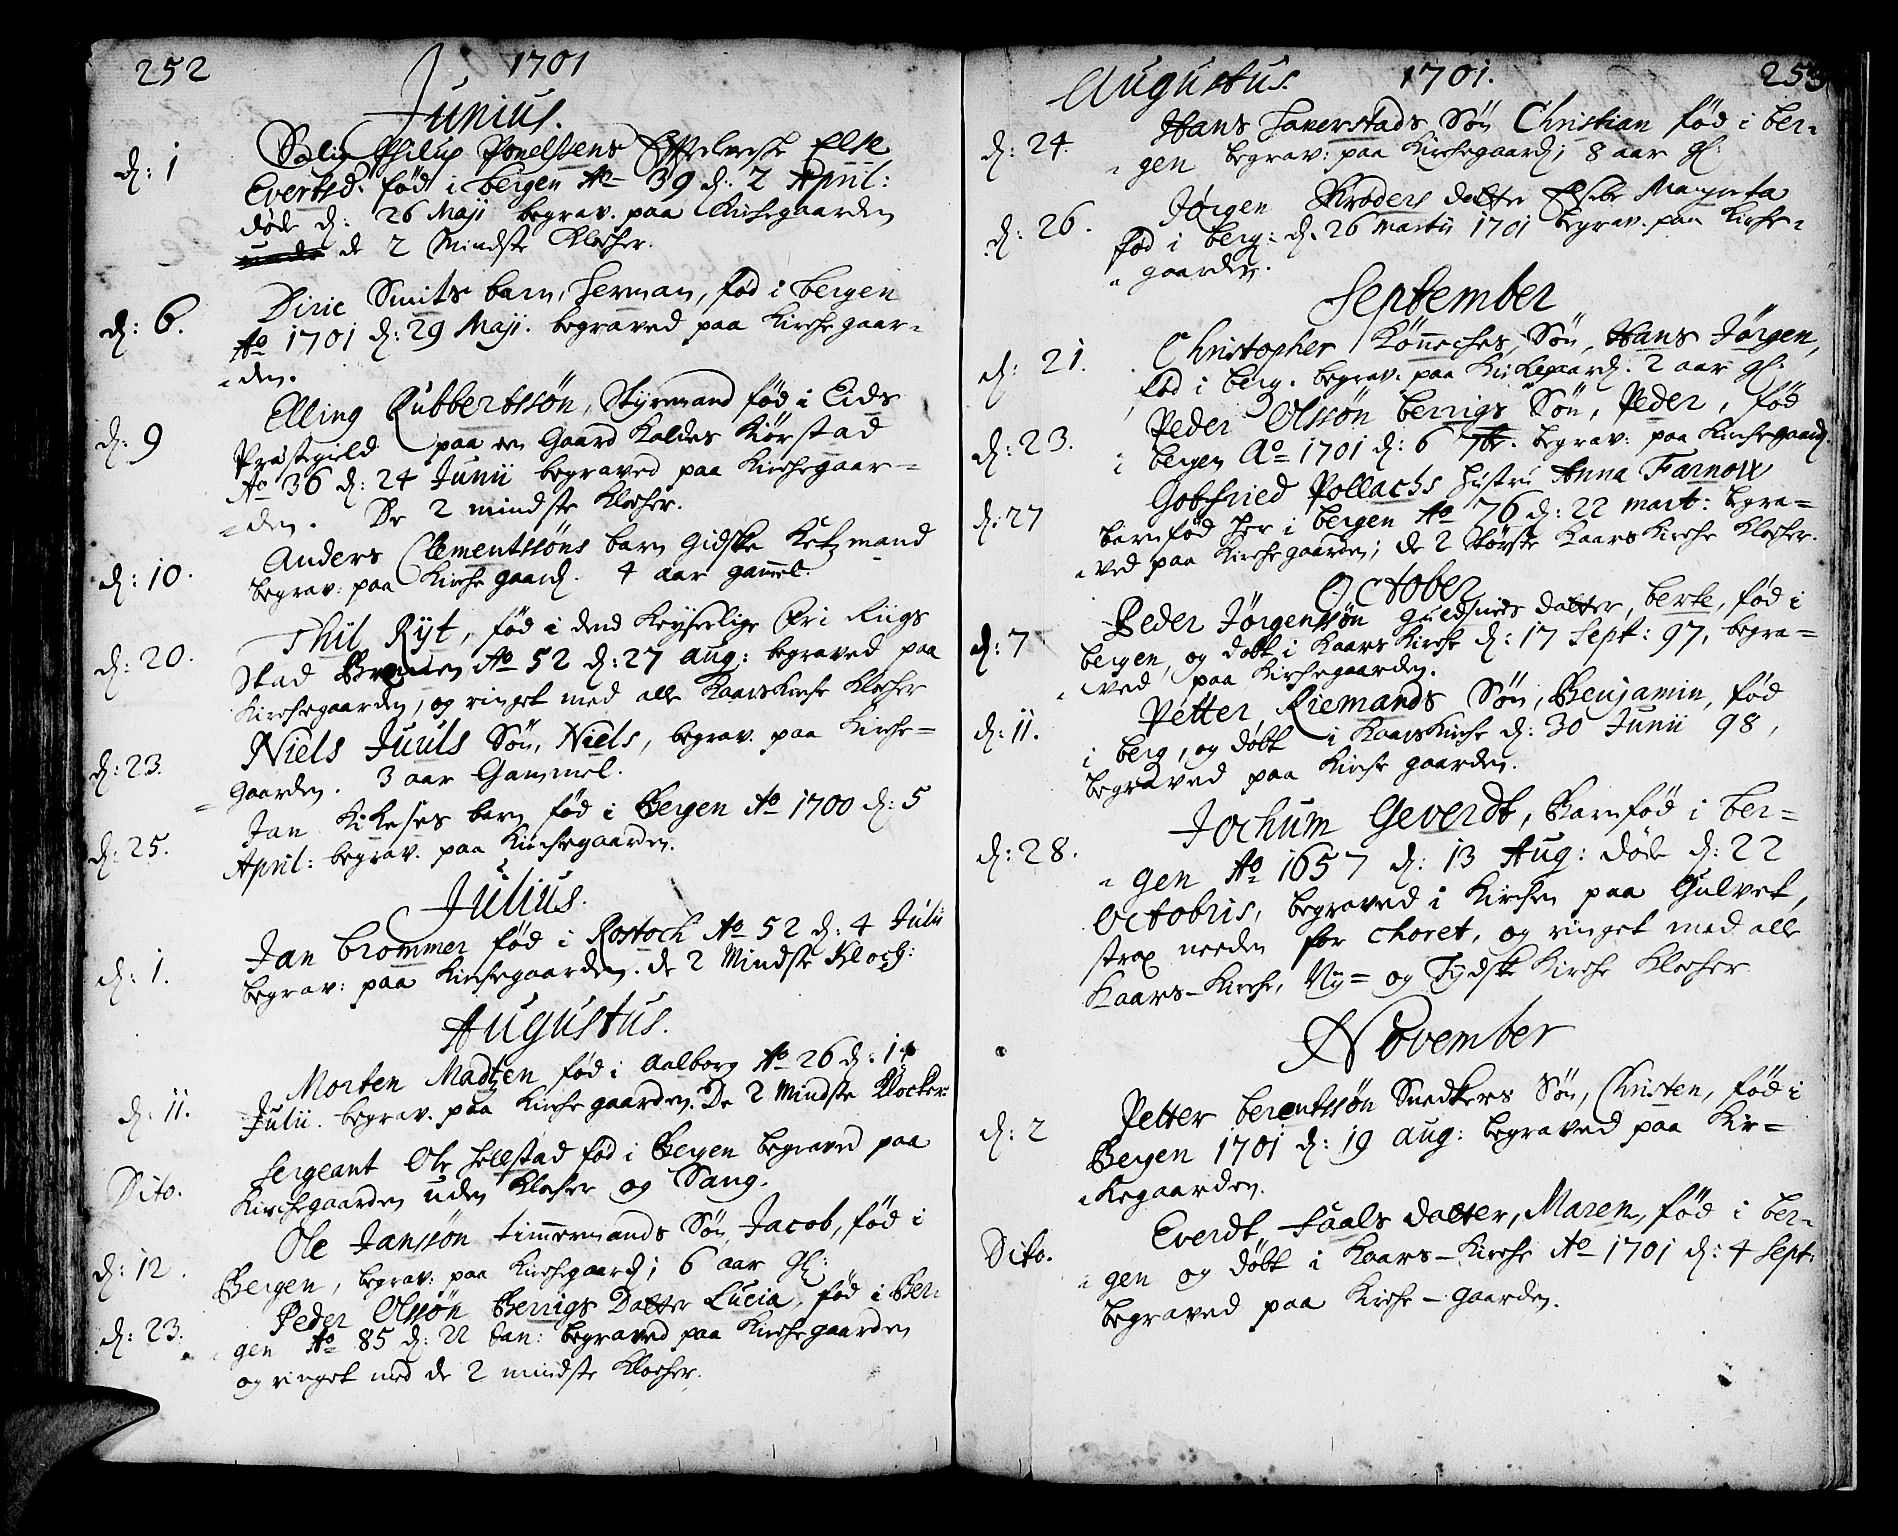 252 1701
Junius.
d: 1 Salig Philip Ponelssens Efterlevske Else
Evertsd: fød i bergen Ao 39 d: 2 April:
døde d: 26 Maji begrav. paa Kirchegaarden
de 2 Mindste Klocher.
d: 6. Diric Smits barn, Herman, fød i bergen
Ao 1701 d: 29 Maji. begraved paa Kirchegaar=
=den.
d: 9 Elling Rubbertssøn, Styrmand fød i Eids
Præstegield paa en Gaard Kaldes Kiørstad
Ao 36 d: 24 Junii begraved paa Kirchegaar=
=den. De 2 mindste Klocher.
d: 10. Anders Clementssøns barn Gidske Ketzmand
begrav: paa Kirchegaard. 4 aar gammel.
d: 20. Thiil Ryt, fød i dend Keyserlige Fri Riigs
Stad Bremen Ao 52 d: 27 aug: begraved paa
Kirchegaarden, og ringet med alle Kaarskirche Klocher
d: 23. Niels Juuls Søn, Niels, begrav. paa Kirche=
=gaarden. 3 aar Gammel.
d: 25. Jan Kikeses barn fød i Bergen Ao 1700 d: 5
April: begrav. paa Kirchegaarden.
Julius.
d: 1. Jan brommer fød i Rostoch Ao 52 d: 4 Julii
begrav: paa Kirchegaarden. de 2 Mindste Kloch:
Augustus.
d: 11. Morten Madtzen fød i Aalborg Ao 26 d: 14
Julii. begrav. paa Kirchegaarden. De 2 Mindste Klocker.
Dito. Sergeant Ole Hellstad fød i Bergen begraved paa
Kirchegaarden uden Klocher og Sang.
d: 12. Ole Janssøn timmermands Søn, Jacob, fød i
Bergen, begrav: paa Kirchegaard; 6 aar gl:
d: 23. Peder Olssøn Berrigs Datter Lucia, fød i Ber=
gen Ao 85 d: 22 Jan: begraved paa Kirchegaarden
og ringet med de 2 mindste Klocher.
Augustus. 1701. 253
d: 24. Hans Haverstads Søn Christian fød i ber=
=gen begrav: paa Kirchegaard; 8 aar gl:
d: 26. Jørgen Skrøders datter Elsebe Margreta
fød i berg: d. 26 Martii 1701 begrav. paa Kirche=
=gaarden.
September
d: 21. Christopher Kønneches Søn, Hans Jørgen,
fød i berg. begrav: paa Kirkegaard. 2 aar gl:
d: 23. Peder Olssøn berrigs Søn, Peder, fød
i bergen Ao 1701 d: 6 7br. begrav: paa Kirchegaard.
d: 27 Gotfried Pollachs Hustru Anna Farnow
barnfød her i bergen Ao 76 d: 22 mart: begra=
=ved paa Kirchegaarden; de 2 Største Kaarskirche Klocher.
October
d: 7 Peder Jørgenssøn Guldsmeds datter, berte, fød i
bergen, og døbt i Kaarskirche d: 17 Sept: 97, begra=
=ved paa Kirchegaarden.
d: 11. Petter Riemands Søn, Benjamin, fød
i berg, og døbt i Kaarskirche d: 30 Junii 98,
begraved paa Kirchegaarden.
d: 28. Jochum Geverdt, Barnfød i ber=
=gen Ao 1657 d: 13 Aug: døde d: 22
Octobris, begraved i Kirchen paa Gulvet,
strax neden for choret, og ringet med alle
Kaars-Kirche, Ny= og Tydske Kirche Klocher
November
d: 2 Petter berentssøn Snedkers Søn, Christen, fød i
Bergen 1701 d: 19 aug: begraved paa Kir=
=kegaarden.
Dito. Everdt Faals datter, Maren, fød i ber=
=gen og døbt i Kaars-Kirche Ao 1701 d: 4 Sept:
begraved paa Kirche-gaarden.